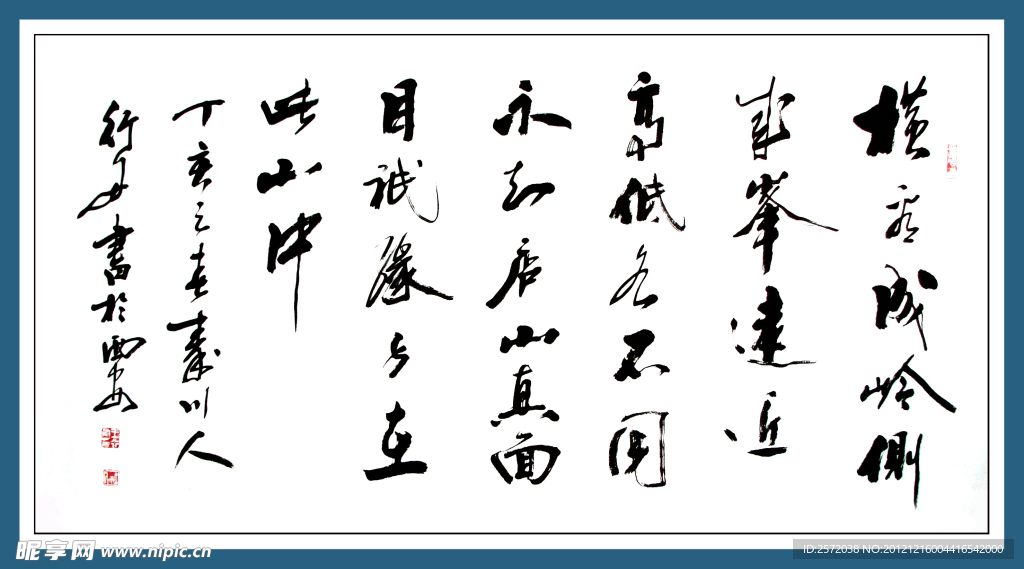 橫看成岭側
成峯遠近
高低各不同
不知庐山真面
目祇緣身在
此山中
丁亥之春寿川人
行書於西安
昵享网 www.nipic.cn
ID:2572038 NO:20121216004416542000